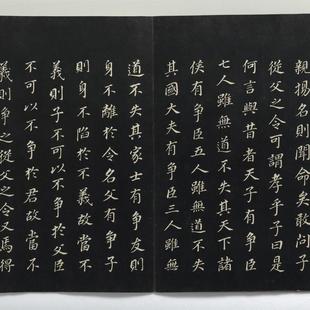 親揚名則聞命矣敢問子
從父之令可謂孝乎子曰是
何言與昔者天子有争臣
七人雖無道不失其天下諸
侯有争臣五人雖無道不失
其國大夫有争臣三人雖無
道不失其家士有争友則
身不離於令名父有争子
則身不陷於不義故當不
義則子不可以不争於父臣
不可以不争於君故當不
義則争之從父之令又焉得